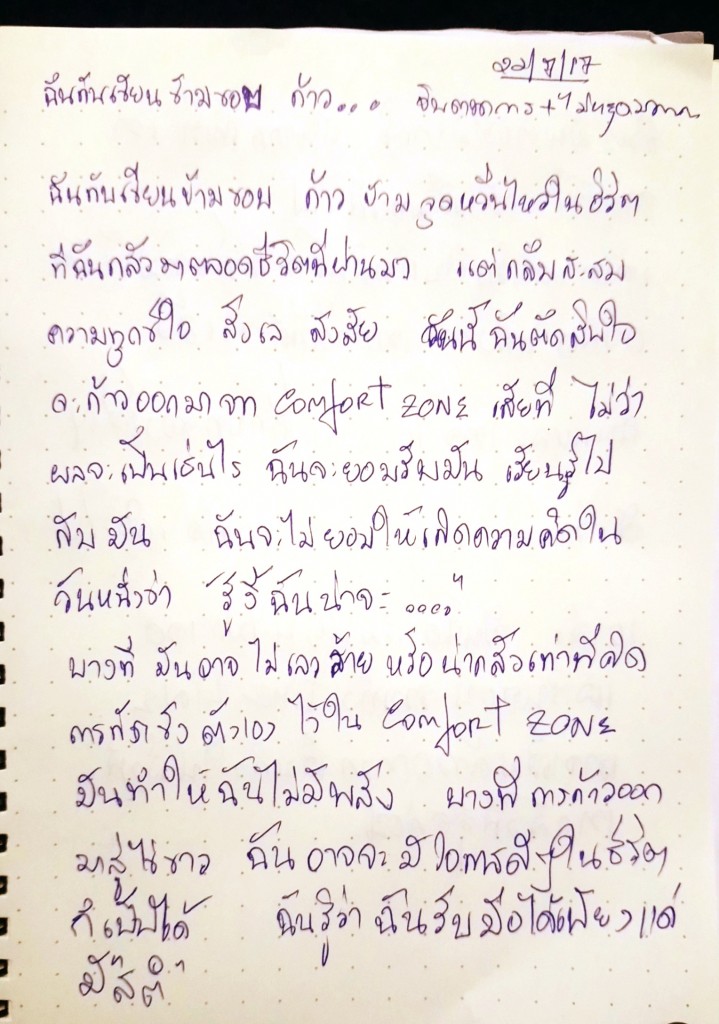 22/7/17
ฉันกับเขียนข้ามขอบ ก้าว... จินตนาการ +
ฉันกับเขียนข้ามขอบ ก้าวข้ามจุดหวั่นไหวในชีวิต
ที่ฉันกลัวมาตลอดชีวิตที่ผ่านมา แต่กลับสะสม
ความทุกข์ใจ ลังเล สงสัย วันนี้ฉันตัดสินใจ
จะก้าวออกมาจาก Comfort ZONE เสียที ไม่ว่า
ผลจะเป็นเช่นไร ฉันจะยอมรับมัน เรียนรู้ไป
กับมัน ฉันจะไม่ยอมให้เกิดความคิดใน
วันหนึ่งว่า "รู้งี้ฉันน่าจะ...."
บางที มันอาจไม่เลวร้าย หรือน่ากลัวเท่าที่คิด
การกักขังตัวเองไว้ใน Comfort ZONE
มันทำให้ฉันไม่มีพลัง บางทีการก้าวออก
มาสู่ ฉันอาจจะมีโอกาสดีๆในชีวิต
ก็เป็นได้ ฉันรู้ว่าฉันรับมือได้เพียงแค่
มี "สติ"